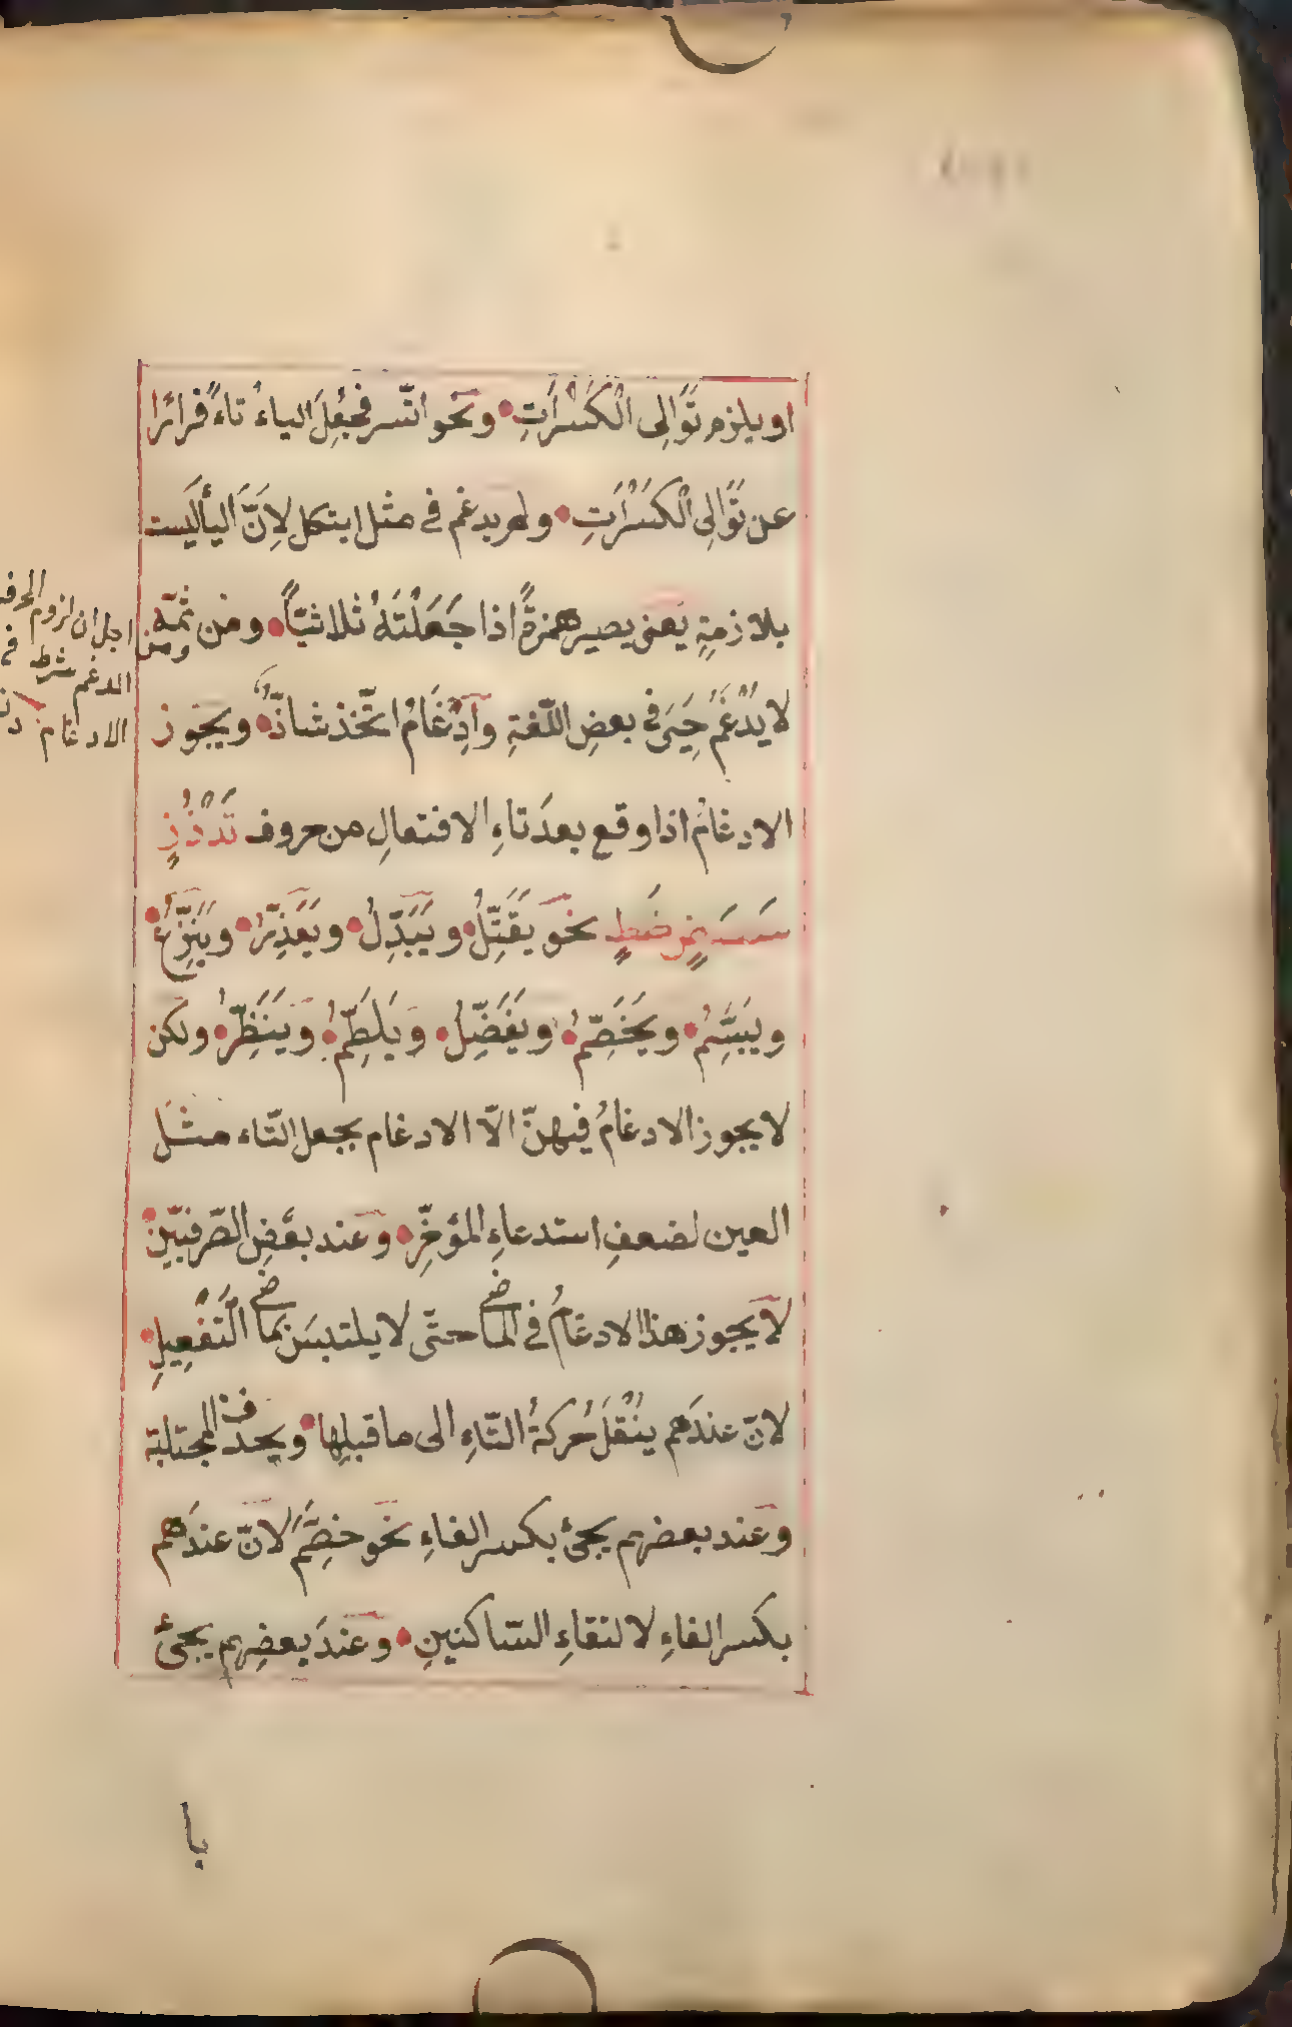 او يلزم تَوَالِى الْكَسْرَاتِ ونحو اتّسر فجُعِلَ الياءُ تاءً فرارًا
عن تَوَالِى الْكَسْرَاتِ ولم يدغم فى مثل ايتكل لِاَنَّ اليأ لَيست
بلازمةٍ يَعنى يصير همزةً اذا جَعَلْتَهُ ثلاثيّاً ومن ثمّه
لا يُدْغَمُ حَيِىَ فى بعضِ اللّغةِ وَاِدْغَامُ اتّخذ شاذٌّ ويجوز
الادغامُ اذا وقع بعدَ تاءِ الافتعالِ من حروف تَدْذُزٍ
سَسَ‍ـ‍ضَطٍ نحو يَقَتِّلُ ويَبَدِّلُ ويَعَذِّرُ ويَنَزِّعُ
ويَبَسِّمُ ويَخَصِّمُ ويَفَضِّلُ ويَلَطِّمُ ويَنَظِّرُ ولكن
لا يجوز الادغامُ فيهنّ الّا الادغام بجعل التّاء مثل
العين لضعفِ استدعاءِ المؤخّرِ وعند بعضِ الصّرفيّينَ
لا يجوز هذا الادغامُ فى الماضى حتّى لا يلتبسَ بماضى التَّفْعِيلِ
لانّ عندَهم يُنْقَلُ حركةُ التّاءِ الى ما قبلِها ويحذف المجتلبة
وعند بعضهم يجئ بكسر الفاءِ نحو خِصَّمَ لانّ عندَهم
بكسر الفاءِ لالتقاءِ السّاكنينِ وعندَ بعضِهم يجئ
با
ومن
اجل ان لزوم الحرف
المدغم شرط فى
الادغام